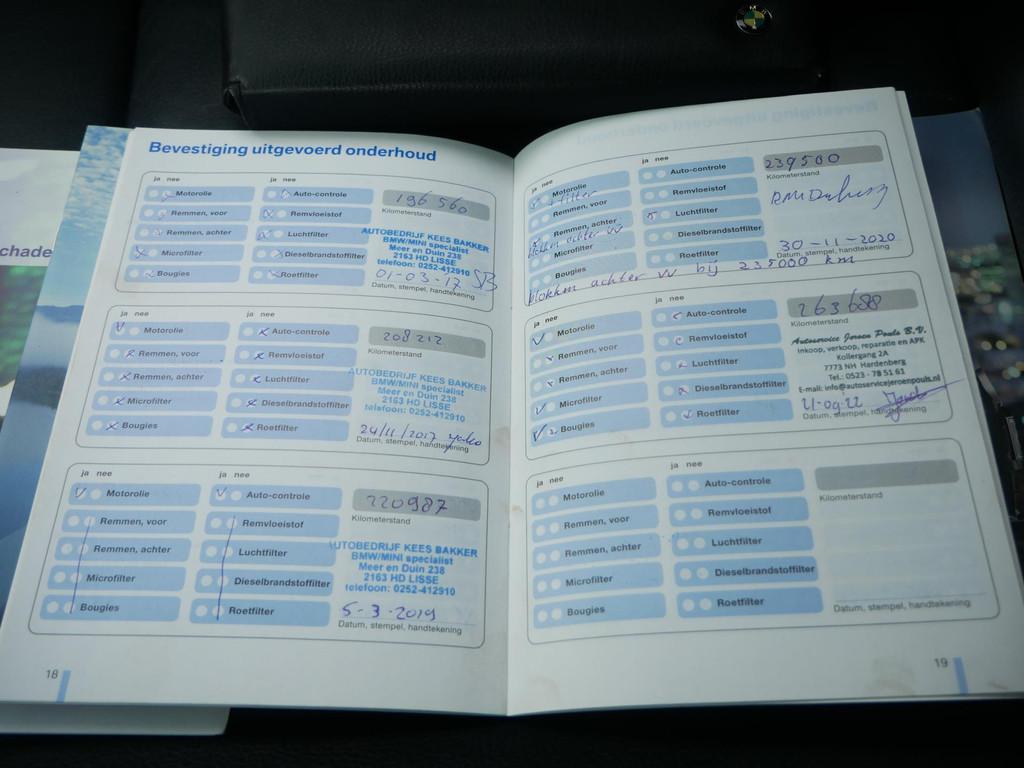 chade
Bevestiging uitgevoerd onderhoud
ja nee
ja nee
Motorolie
Auto-controle
196 560
Remmen, voor
Remvloeistof
Kilometerstand
Remmen, achter
Luchtfilter
AUTOBEDRIJF KEES BAKKER
BMW/MINI specialist
Meer en Duin 238
2163 HD LISSE
telefoon: 0252-412910
Microfilter
Dieselbrandstoffilter
Bougies
Roetfilter
01-03-17
Datum, stempel, handtekening
ja nee
ja nee
Motorolie
Auto-controle
208 212
Remmen, voor
Remvloeistof
Kilometerstand
Remmen, achter
Luchtfilter
AUTOBEDRIJF KEES BAKKER
BMW/MINI specialist
Meer en Duin 238
2163 HD LISSE
telefoon: 0252-412910
Microfilter
Dieselbrandstoffilter
Bougies
Roetfilter
24/11/2017
Datum, stempel, handtekening
ja nee
ja nee
Motorolie
Auto-controle
220987
Remmen, voor
Remvloeistof
Kilometerstand
Remmen, achter
Luchtfilter
UTOBEDRIJF KEES BAKKER
BMW/MINI specialist
Meer en Duin 238
2163 HD LISSE
telefoon: 0252-412910
Microfilter
Dieselbrandstoffilter
Bougies
Roetfilter
5-3-2019
Datum, stempel, handtekening
18
ja nee
ja nee
Motorolie
Auto-controle
239500
filter
Remmen, voor
Remvloeistof
Kilometerstand
Remmen, achter
Luchtfilter
blokken achter VV
Microfilter
Dieselbrandstoffilter
Bougies
Roetfilter
30-11-2020
Datum, stempel, handtekening
blokken achter VV bij 235000 km
ja nee
ja nee
Motorolie
Auto-controle
263688
Remmen, voor
Remvloeistof
Kilometerstand
Remmen, achter
Luchtfilter
Autoservice Jeroen Pouls B.V.
Inkoop, verkoop, reparatie en APK
Kollergang 2A
7773 NH Hardenberg
Tel.: 0523 - 78 51 61
E-mail: info@autoservicejeroenpouls.nl
Microfilter
Dieselbrandstoffilter
Bougies
Roetfilter
21-09-22
Datum, stempel, handtekening
ja nee
ja nee
Motorolie
Auto-controle
Remmen, voor
Remvloeistof
Kilometerstand
Remmen, achter
Luchtfilter
Microfilter
Dieselbrandstoffilter
Bougies
Roetfilter
Datum, stempel, handtekening
19